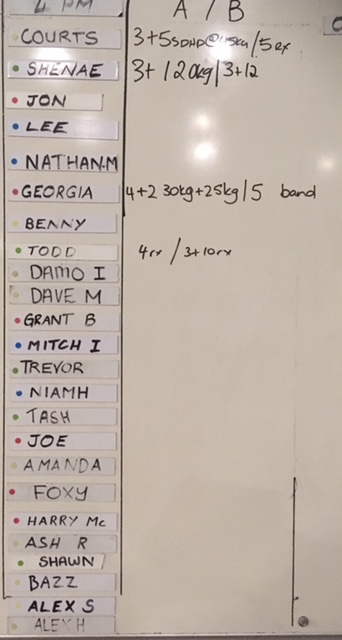 4 PM A / B
COURTS 3+5 SDHP@45kg / 5 rx
SHENAE 3+ 120kg | 3+12
JON
LEE
NATHAN.M
GEORGIA 4+2 30kg+25kg | 5 band
BENNY
TODD 4rx / 3+10rx
DAMO I
DAVE M
GRANT B
MITCH I
TREVOR
NIAMH
TASH
JOE
AMANDA
FOXY
HARRY Mc
ASH R
SHAWN
BAZZ
ALEX S
ALEX H